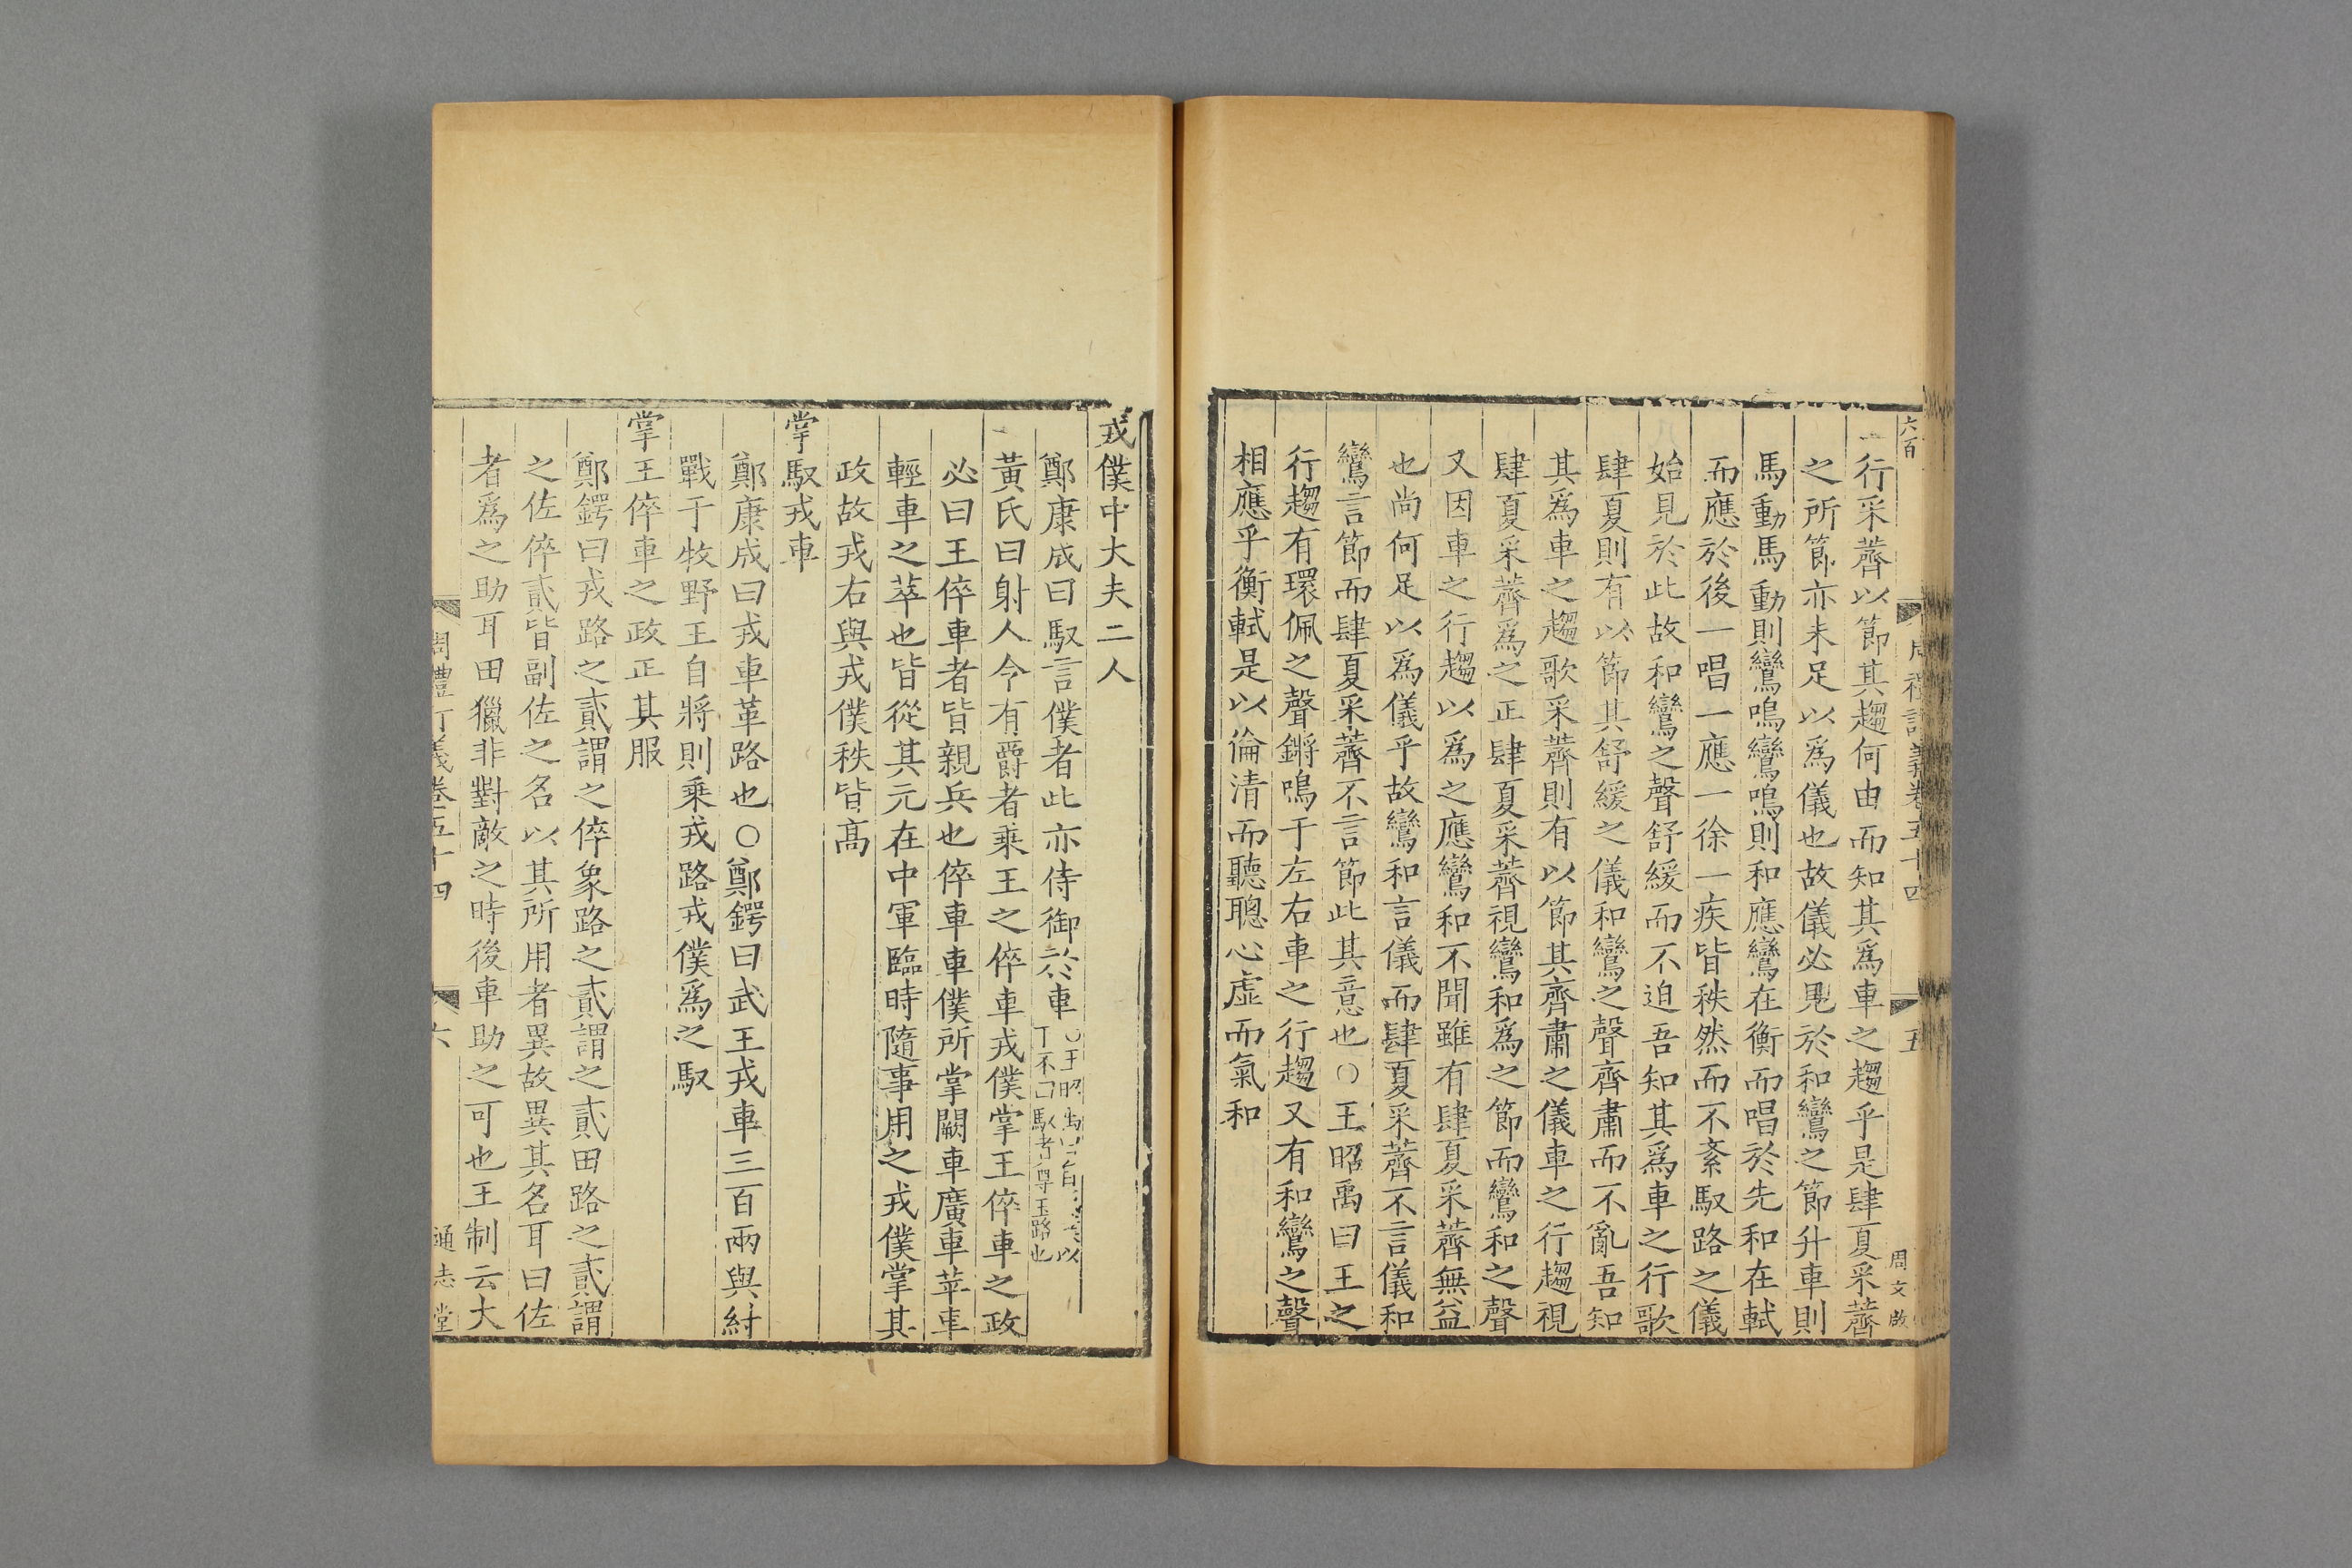 六百
周禮訂義卷五十四
五
周文啟
行采薺以節其趨何由而知其爲車之趨乎是肆夏采薺
之所節亦未足以爲儀也故儀必見於和鸞之節升車則
馬動馬動則鸞鳴鸞鳴則和應鸞在衡而唱於先和在軾
而應於後一唱一應一徐一疾皆秩然而不紊馭路之儀
始見於此故和鸞之聲舒緩而不迫吾知其爲車之行歌
肆夏則有以節其舒緩之儀和鸞之聲齊肅而不亂吾知
其爲車之趨歌采薺則有以節其齊肅之儀車之行趨視
肆夏采薺爲之正肆夏采薺視鸞和爲之節而鸞和之聲
又因車之行趨以爲之應鸞和不聞雖有肆夏采薺無益
也尚何足以爲儀乎故鸞和言儀而肆夏采薺不言儀和
鸞言節而肆夏采薺不言節此其意也○王昭禹曰王之
行趨有環佩之聲鏘鳴于左右車之行趨又有和鸞之聲
相應乎衡軾是以倫清而聽聰心虛而氣和
戎僕中大夫二人
鄭康成曰馭言僕者此亦侍御於車○王昭禹曰以
不曰馭者尊玉路也
黃氏曰射人令有爵者乘王之倅車戎僕掌王倅車之政
必曰王倅車者皆親兵也倅車車僕所掌闕車廣車苹車
輕車之萃也皆從其元在中軍臨時隨事用之戎僕掌其
政故戎右與戎僕秩皆高
掌馭戎車
鄭康成曰戎車革路也○鄭鍔曰武王戎車三百兩與紂
戰于牧野王自將則乘戎路戎僕爲之馭
掌王倅車之政正其服
鄭鍔曰戎路之貳謂之倅象路之貳謂之貳田路之貳謂
之佐倅貳皆副佐之名以其所用者異故異其名耳曰佐
者爲之助耳田獵非對敵之時後車助之可也王制云大
周禮訂義卷五十四
六
通志堂